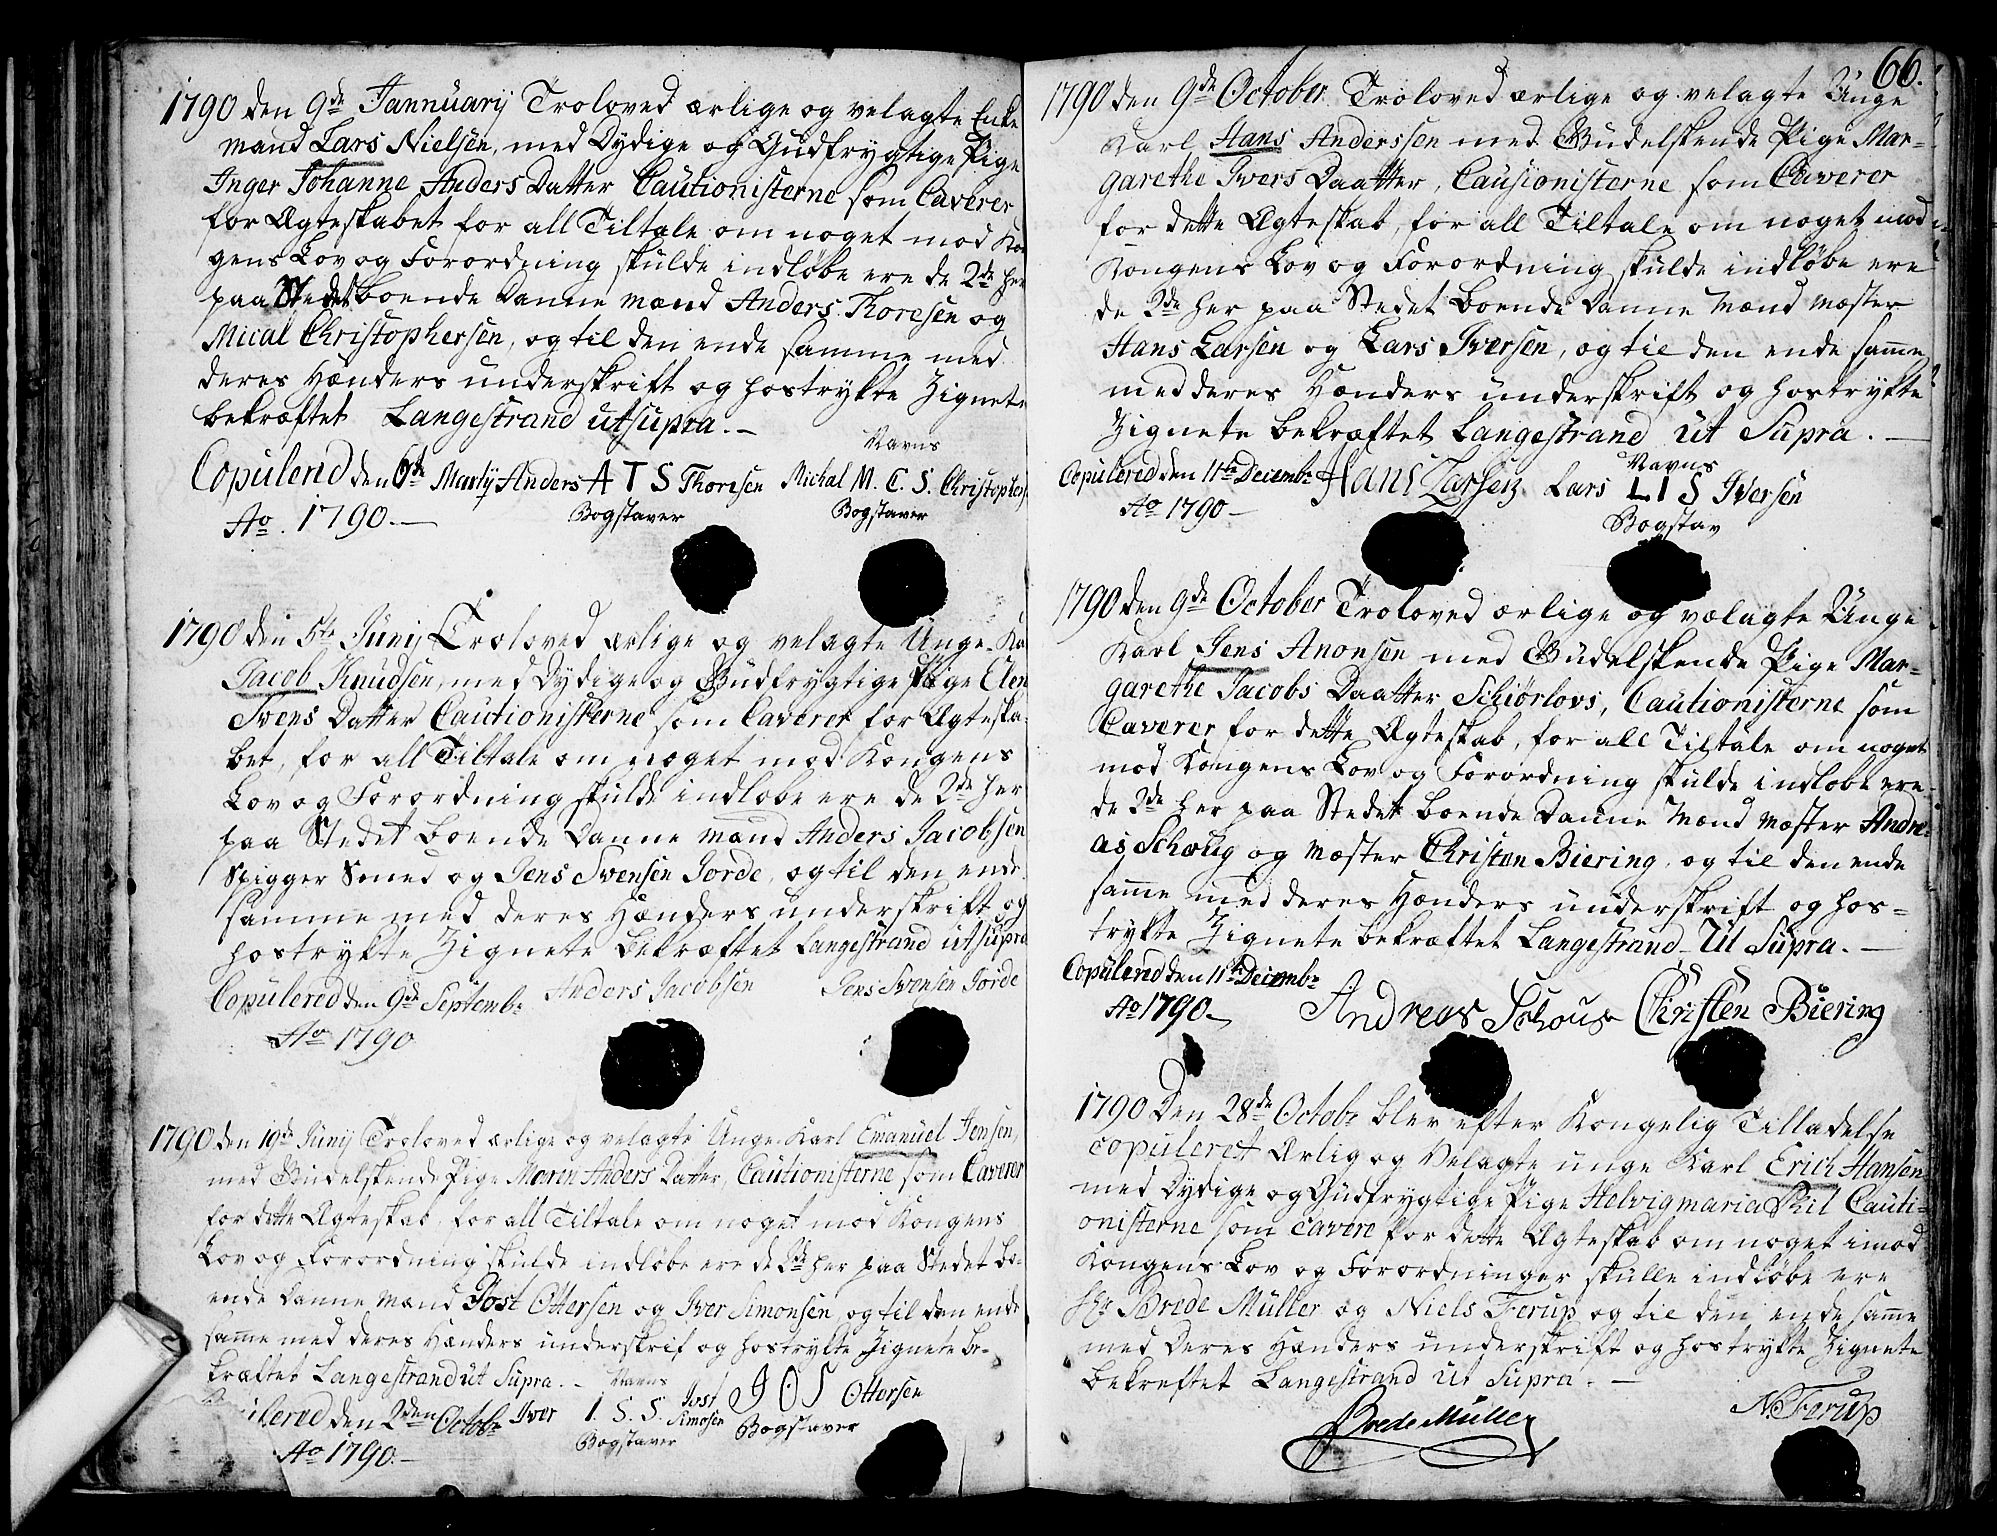 1790 den 9de Jannuarij Troloved ærlige og velagte Enke
mand Lars Nielsen, med Dydige og Gudfrygtige Pige
Inger Johanne Anders Datter Cautionisterne som Caverer
for Ægteskabet for all Tiltale om noget mod Kon
gens Lov og Forordning skulde indløbe ere de 2de her
paa Stedet boende Danne mænd Anders Thoresen og
Mical Christophersen, og til den ende samme med
deres Hænders underskrift og hostrykte Zignete
bekræftet Langestrand ut supra.-
Navns
Copulerid den 6te Martij Anders A T S Thoresen Michal M. C. S. Christophers
Ao. 1790.- Bogstaver Bogstaver
1790 den 5te Junij Troloved ærlige og velagte Unge Ka
Jacob Knudsen, med Dydige og Gudfrygtige Pige Elen
Svens Datter Cautionisterne som Caverer for Ægteska
bet, for all Tiltale om noget mod Kongens
Lov og Forordning skulde indlobe ere de 2de her
paa Stedet boende Danne mænd Anders Jacobsen
Spigger Smed og Jens Svensen Jorde, og til den ende
samme med deres Hænders underskrift og
hostrykte Zignete bekræftet Langestrand ut supra
Copulered den 9de Septembr Anders Jacobsen Jens Svensen Jorde
Ao 1790
1790 den 19de Junij Troloved ærlige og velagte Unge Karl Emanuel Jensen,
med Gudelskende Pige Maren Anders Datter, Cautionisterne som Caverer
for dette Ægteskab, for all Tiltale om noget mod Kongens
Lov og Forordning skulde indløbe ere de 2de her paa Stedet bo-
ende Danne mænd Jost Ottersen og Iver Simonsen, og til den ende
samme med deres Hænders underskrif og hostrykte Zignete be-
kræftet Langestrand ut Supra.- Navns
ulered den 2den Octobr Iver I. S. S. Simosen Jost JOS Ottersen
Ao 1790.- Bogstaver Bogstaver
66.
1790 den 9de October Troloved ærlige og velagte Unge
Karl Hans Anderssen med Gudelskende Pige Mar-
garethe Ivers Daatter, Causionisterne som Caverer
for dette Ægteskab, for all Tiltale om noget mod
Kongens Lov og Forordning skulde indløbe ere
de 2de her paa Stedet boende Danne Mænd Mæster
Hans Larsen og Lars Iversen, og til den ende samme
med deres Hænders underskrift og hostrykte
Zignete bekræftet Langestrand ut Supra.-
Navns
Copulered den 11te Decembr Hans Larsen Lars L I S Iversen
Ao 1790- Bogstav
1790 den 9de October Troloved ærlige og vælagte Unge
Karl Jens Anonsen med Gudelskende Pige Mar-
garethe Jacobs Daatter Schiørlovs, Cautionisterne som
Caverer for dette Ægteskab, for all Tiltale om noget
mod Kongens Lov og Forordning skulde indløbe ere
de 2de her paa Stedet boende Danne Mænd Mæster Andre-
as Schoug og Mæster Christen Biering, og til den ende
samme med deres Hænders underskrift og hos-
trykte Zignete bekræftet Langestrand Ut Supra.-
Copulered den 11te Decembr
Ao 1790- Andreas Schoug Christen Biering
1790 Den 28de Octobr blev efter Kongelig Tilladelse
copuleret Ærlig og Velagte unge Karl Erich Hansen
med Dydige og Gudfrygtige Pige Helvig maria Skil Cauti-
onisterne som cavere for dette Ægteskab om noget imod
Kongens Lov og Forordninger skulle indløbe ere
Sr Brede Müller og Niels Ferup og til den ende samme
med Deres Hænders underskrift og hostrykte Zignete
bekreftet Langestrand ut Supra.-
Brede Müller N. Ferup